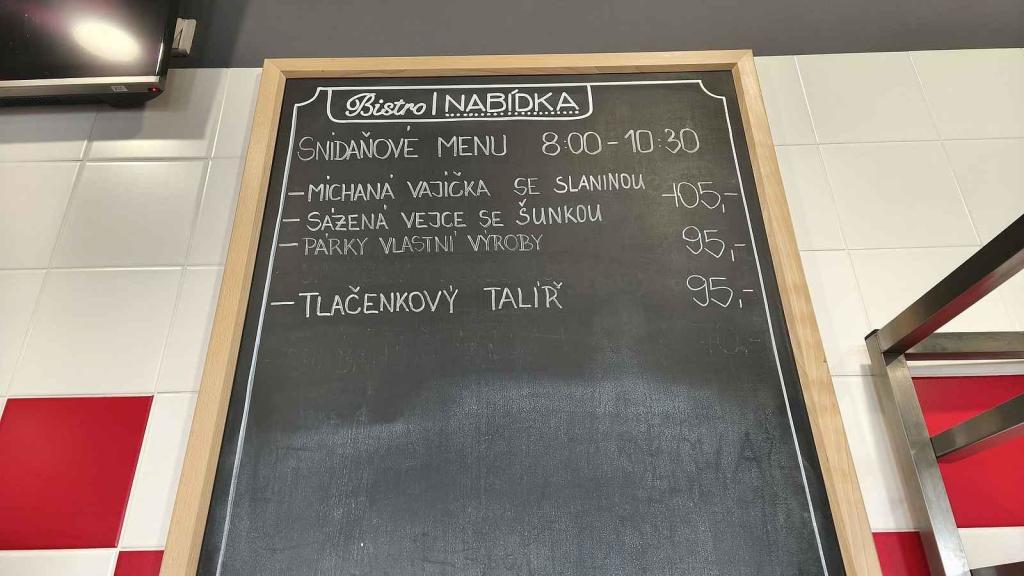 Bistro | NABÍDKA
SNÍDAŇOVÉ MENU 8:00-10:30
- MÍCHANÁ VAJÍČKA SE SLANINOU 105,-
- SÁZENÁ VEJCE SE ŠUNKOU
- PÁRKY VLASTNÍ VÝROBY 95,-
- TLAČENKOVÝ TALÍŘ 95,-